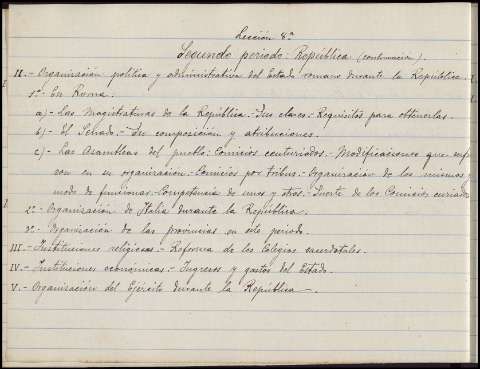 Lección 8ª
Segundo periodo: República (continuación).
II.- Organización política y administrativa del Estado romano durante la República.
1º- En Roma:
a)- Las Magistraturas de la República.- Sus clases.- Requisitos para obtenerlas.
b)- El Senado.- Su composición y atribuciones.
c)- Las Asambleas del pueblo: Comicios centuriados.- Modificaciones que sufrie
ron en su organización.- Comicios por tribus.- Organización de los mismos
modo de funcionar.- Competencia de unos y otros.- Suerte de los Comicios curiados
2º- Organización de Italia durante la República.
3º- Organización de las provincias en este periodo.
III.- Instituciones religiosas.- Reforma de los Colegios sacerdotales.
IV.- Instituciones económicas.- Ingresos y gastos del Estado.
V.- Organización del Ejército durante la República.-